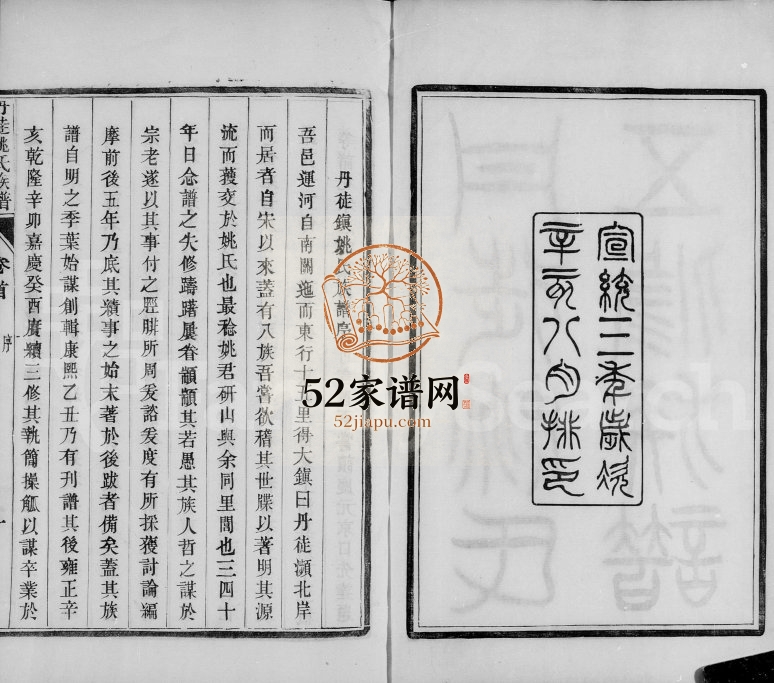 宣統三年歲次
辛亥八月排印
丹徒鎮姚氏族譜序
吾邑運河自南關迤而東行十五里得大鎮曰丹徒瀕北岸
而居者自宋以來蓋有八族吾嘗欲稽其世牒以著明其源
流而獲交於姚氏也最稔姚君研山與余同里閈也三四十
年日念譜之失修躊躇屢眷顓顓其若愚其族人哲之謀於
宗老遂以其事付之脛腁所周爰諮爰度有所採獲討論編
摩前後五年乃底其績事之始末著於後跋者備矣蓋其族
譜自明之季葉始謀創輯康熙乙丑乃有刊譜其後雍正辛
亥乾隆辛卯嘉慶癸酉賡續三修其執簡操觚以謀卒業於
丹徒姚氏族譜
卷首
序
一
52家谱网
52jiapu.com